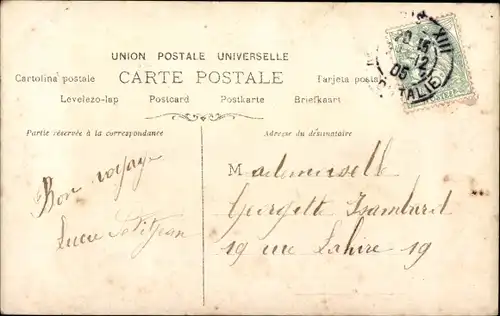 UNION POSTALE UNIVERSELLE
Cartolina postale CARTE POSTALE Tarjeta postal
Levelezo-lap Postcard Postkarte Briefkaart
Partie réservée à la correspondance
Adresse du destinataire
XIII
15
12
05
ITALIE
Bon voyage
Lucie Petitjean
Mademoiselle
Georgette Isambard
19 rue Lahire 19